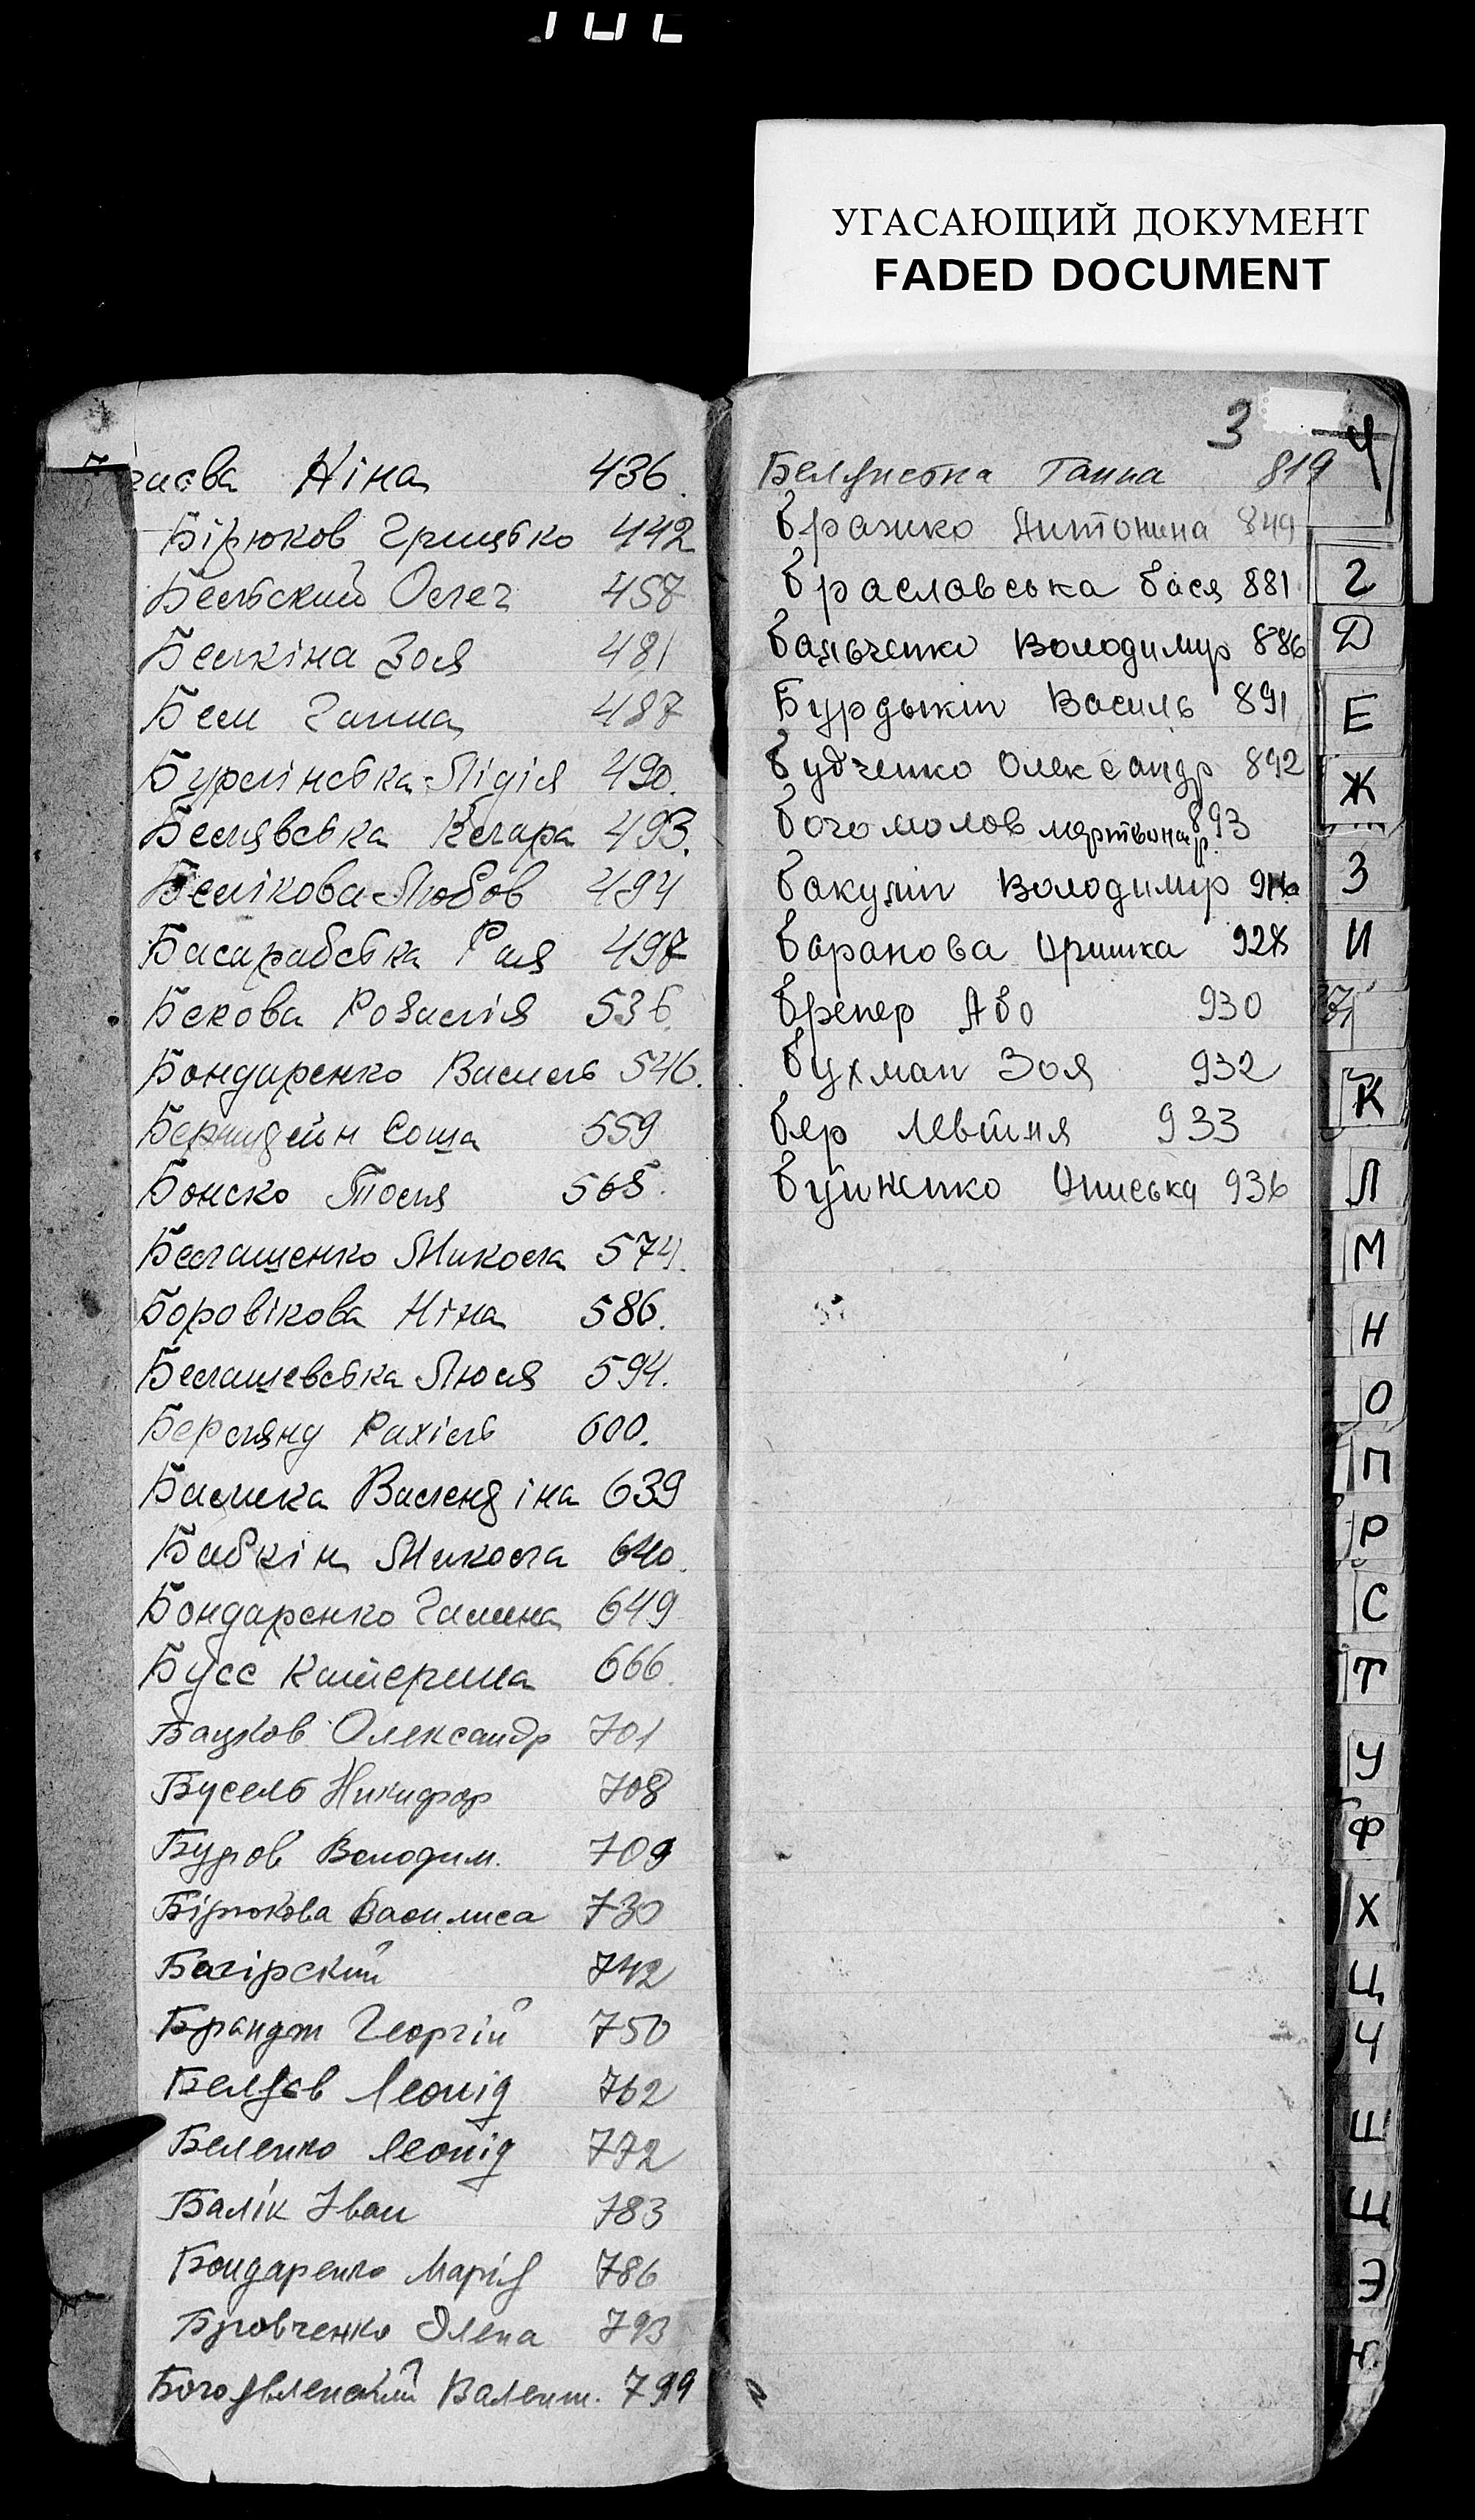 УГАСАЮЩИЙ ДОКУМЕНТ
FADED DOCUMENT
Ніна 436.
Бірюков Грицько 442
Бельский Олег 457
Белкіна Зоя 481
Бем Ганна 487
Бурлінська Лідія 490.
Белявська Клара 493.
Белікова Любов 494
Басарабська Рая 497
Бекова Розалія 536.
Бондаренко Василь 546.
Бернштейн Соша 559
Бонско Тося 565.
Белашенко Микола 574.
Боровікова Ніна 586.
Белашевська Люся 594.
Берлянд Рахіль 600.
Балика Валентіна 639
Бабкін Микола 640.
Бондаренко Галина 649
Бусс Катерина 666.
Бацков Олександр 701
Бусель Никифор 708
Буров Володим. 709
Бірюкова Василиса 730
Багірский 742
Брандт Георгій 750
Беляєв Леонід 762
Беленко Леонід 772
Балік Іван 783
Бондаренко Марія 786
Бровченко Олена 793
Богоявленский Валент. 799
3
Ганна 819
Бражко Антонина 849
Брасловська Бася 881
Бальченко Володимир 886
Бурдыкін Василь 891
Будченко Олександр 892
Богомолов 893
Бакулін Володимир
Баранова Оришка 928
Бренер Або 930
Бухман Зоя 932
Бер 933
Ониська 936
Г
Д
Е
Ж
З
И
К
Л
М
Н
О
П
Р
С
Т
У
Ф
Х
Ц
Ч
Ш
Щ
Э